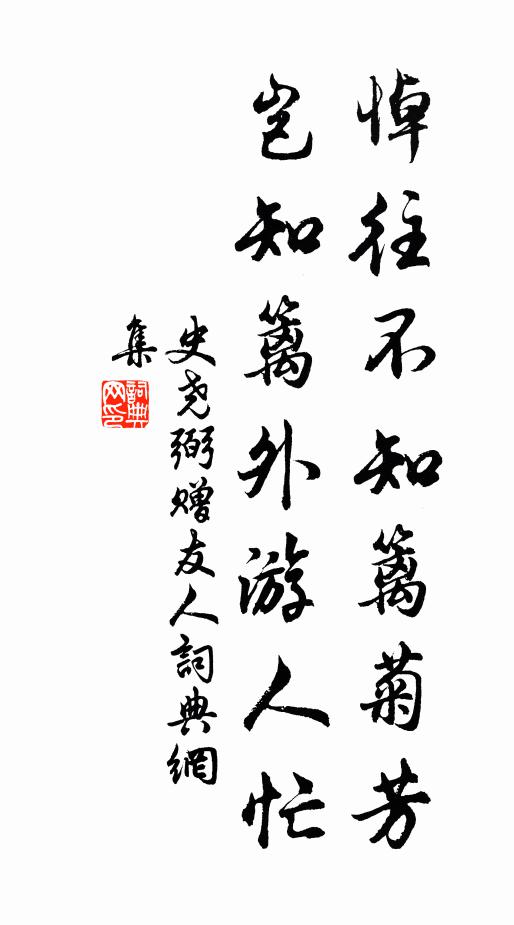 悼往不知篱菊芳
岂知篱外游人忙
史尧弼赠友人詞典網
集
詞典網印